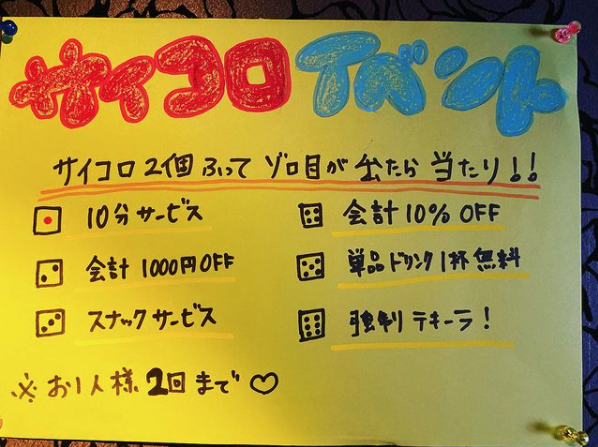 サイコロイベント
サイコロ2個ふって ゾロ目が出たら当たり!!
10分サービス
会計10% OFF
会計1000円OFF
単品ドリンク1杯無料
スナックサービス
強制テキーラ!
※お1人様2回まで♡